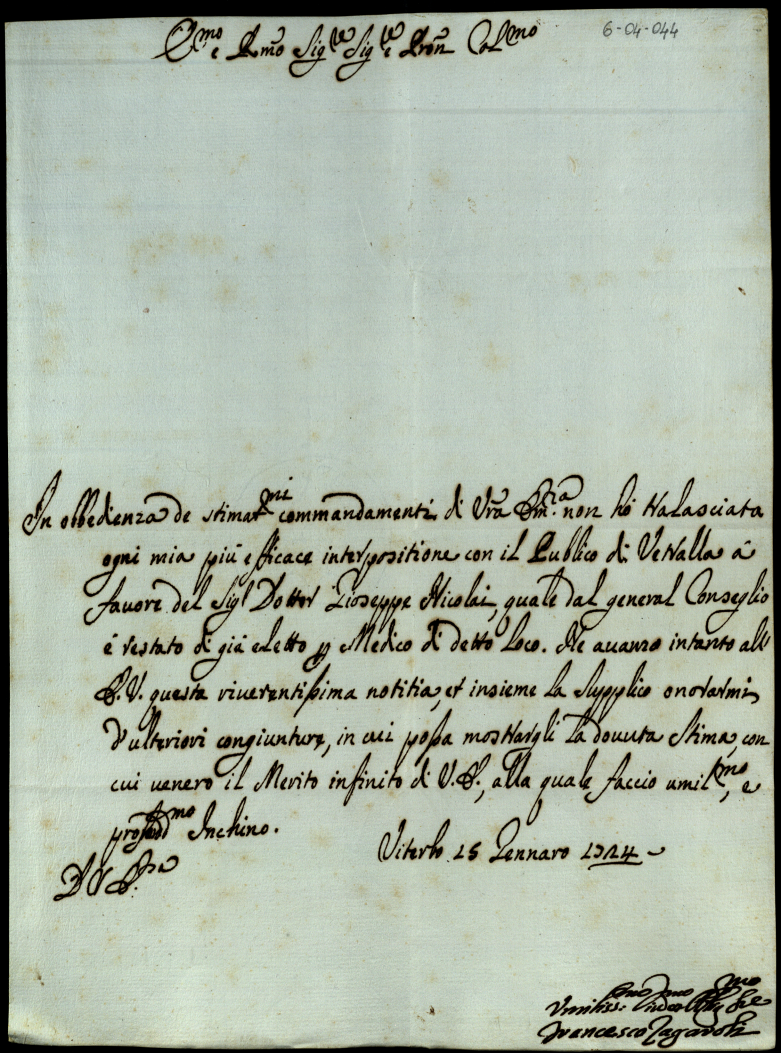 6-04-044
e Rmo Sigre Sigre e Pron Colmo
In obbedienza de stimatmi commandamenti di Vra non hò tralasciata
ogni mia più efficace interpositione con il Publico di Vetralla à
favore del Sigr Dottor Gioseppe Nicolai, quale dal general Conseglio
è restato di già eletto p Medico di detto loco. Ne avanzo intanto all'
questa riverentissima notitia, et insieme la supplico onorarmi
d'ulteriori congiunture, in cui possa mostrargli la dovuta stima, con
cui venero il Merito infinito di V.S., alla quale faccio umilmo, e
Inchino.
Viterbo 15 Gennaro 1724
D V S
Francesco Zagaroli